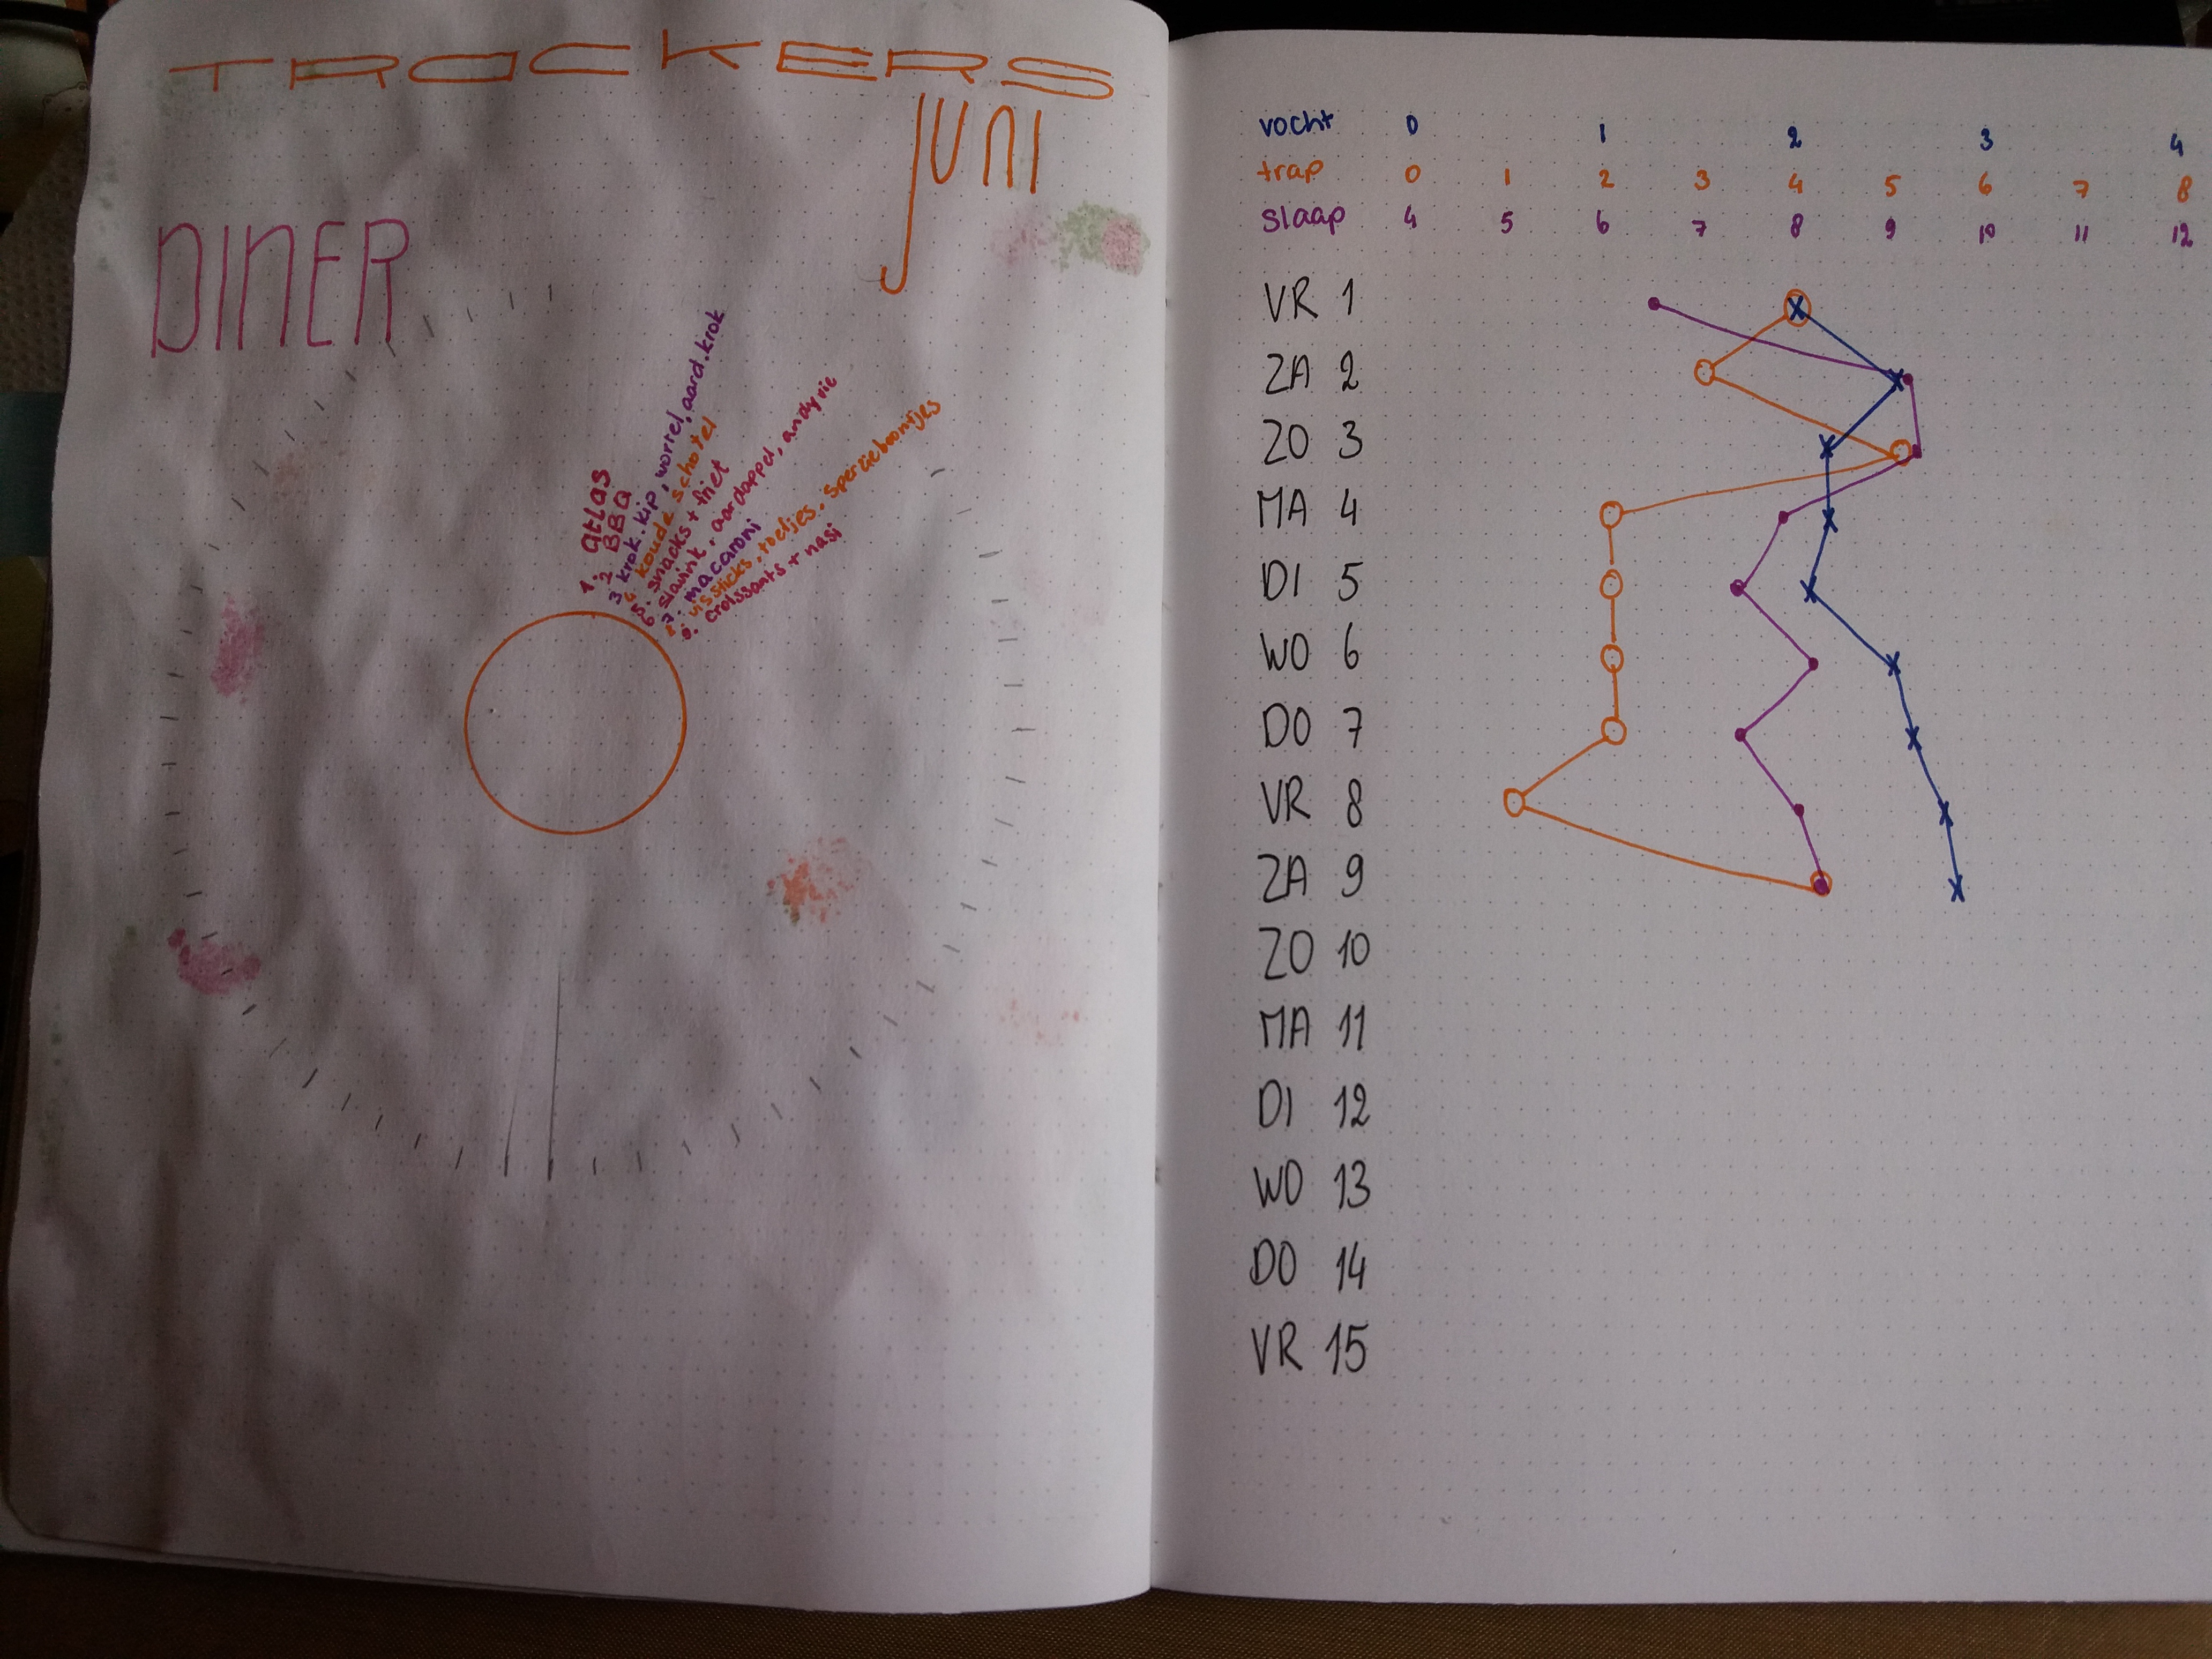 TRACKERS
JUNI
DINER
1. atlas
2 BBQ
3 krok. kip, wortel, aard.krok
4 koude schotel
5. snacks + friet
6 slavink, aardappel, andyvie
7. macaroni
8 vissticks, roeltjes, sperzieboontjes
9. croissants + nasi
vocht 0 1 2 3 4
trap 0 1 2 3 4 5 6 7 8
slaap 4 5 6 7 8 9 10 11 12
VR 1
ZA 2
ZO 3
MA 4
DI 5
WO 6
DO 7
VR 8
ZA 9
ZO 10
MA 11
DI 12
WO 13
DO 14
VR 15